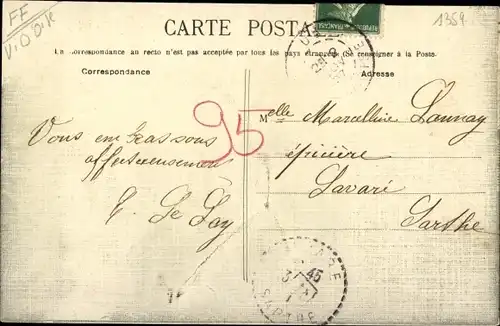 FF
V100R
CARTE POSTA
1354
La correspondance au recto n'est pas acceptée par tous les pays étrangers (Se renseigner à la Poste.
Correspondance
Adresse
95
Vous embrassons
affectueusement
E. Le Goy
Melle Marcelline Launay
épicière
Lavaré
Sarthe
45
SARTHE